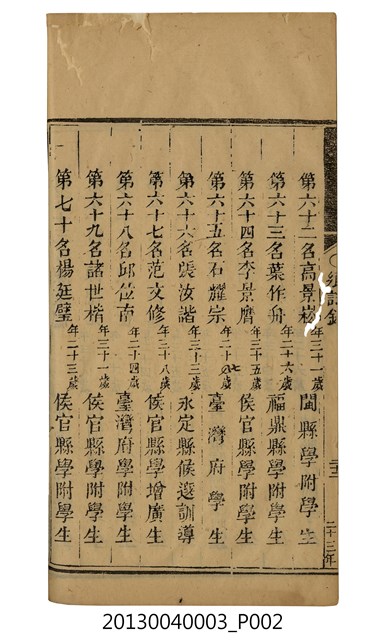 第六十二名高景 年三十一歲 閩縣學附學生
第六十三名葉作舟 年二十六歲 福鼎縣學附學生
第六十四名李景膺 年三十五歲 侯官縣學附學生
第六十五名石耀宗 年二十八歲 臺灣府學生
第六十六名張汝諧 年三十三歲 永定縣候選訓導
第六十七名范文修 年三十八歲 侯官縣學增廣生
第六十八名邱位南 年二十四歲 臺灣府學附學生
第六十九名諸世楷 年三十一歲 侯官縣學附學生
第七十名楊廷璧 年二十三歲 侯官縣學附學生
20130040003_P002